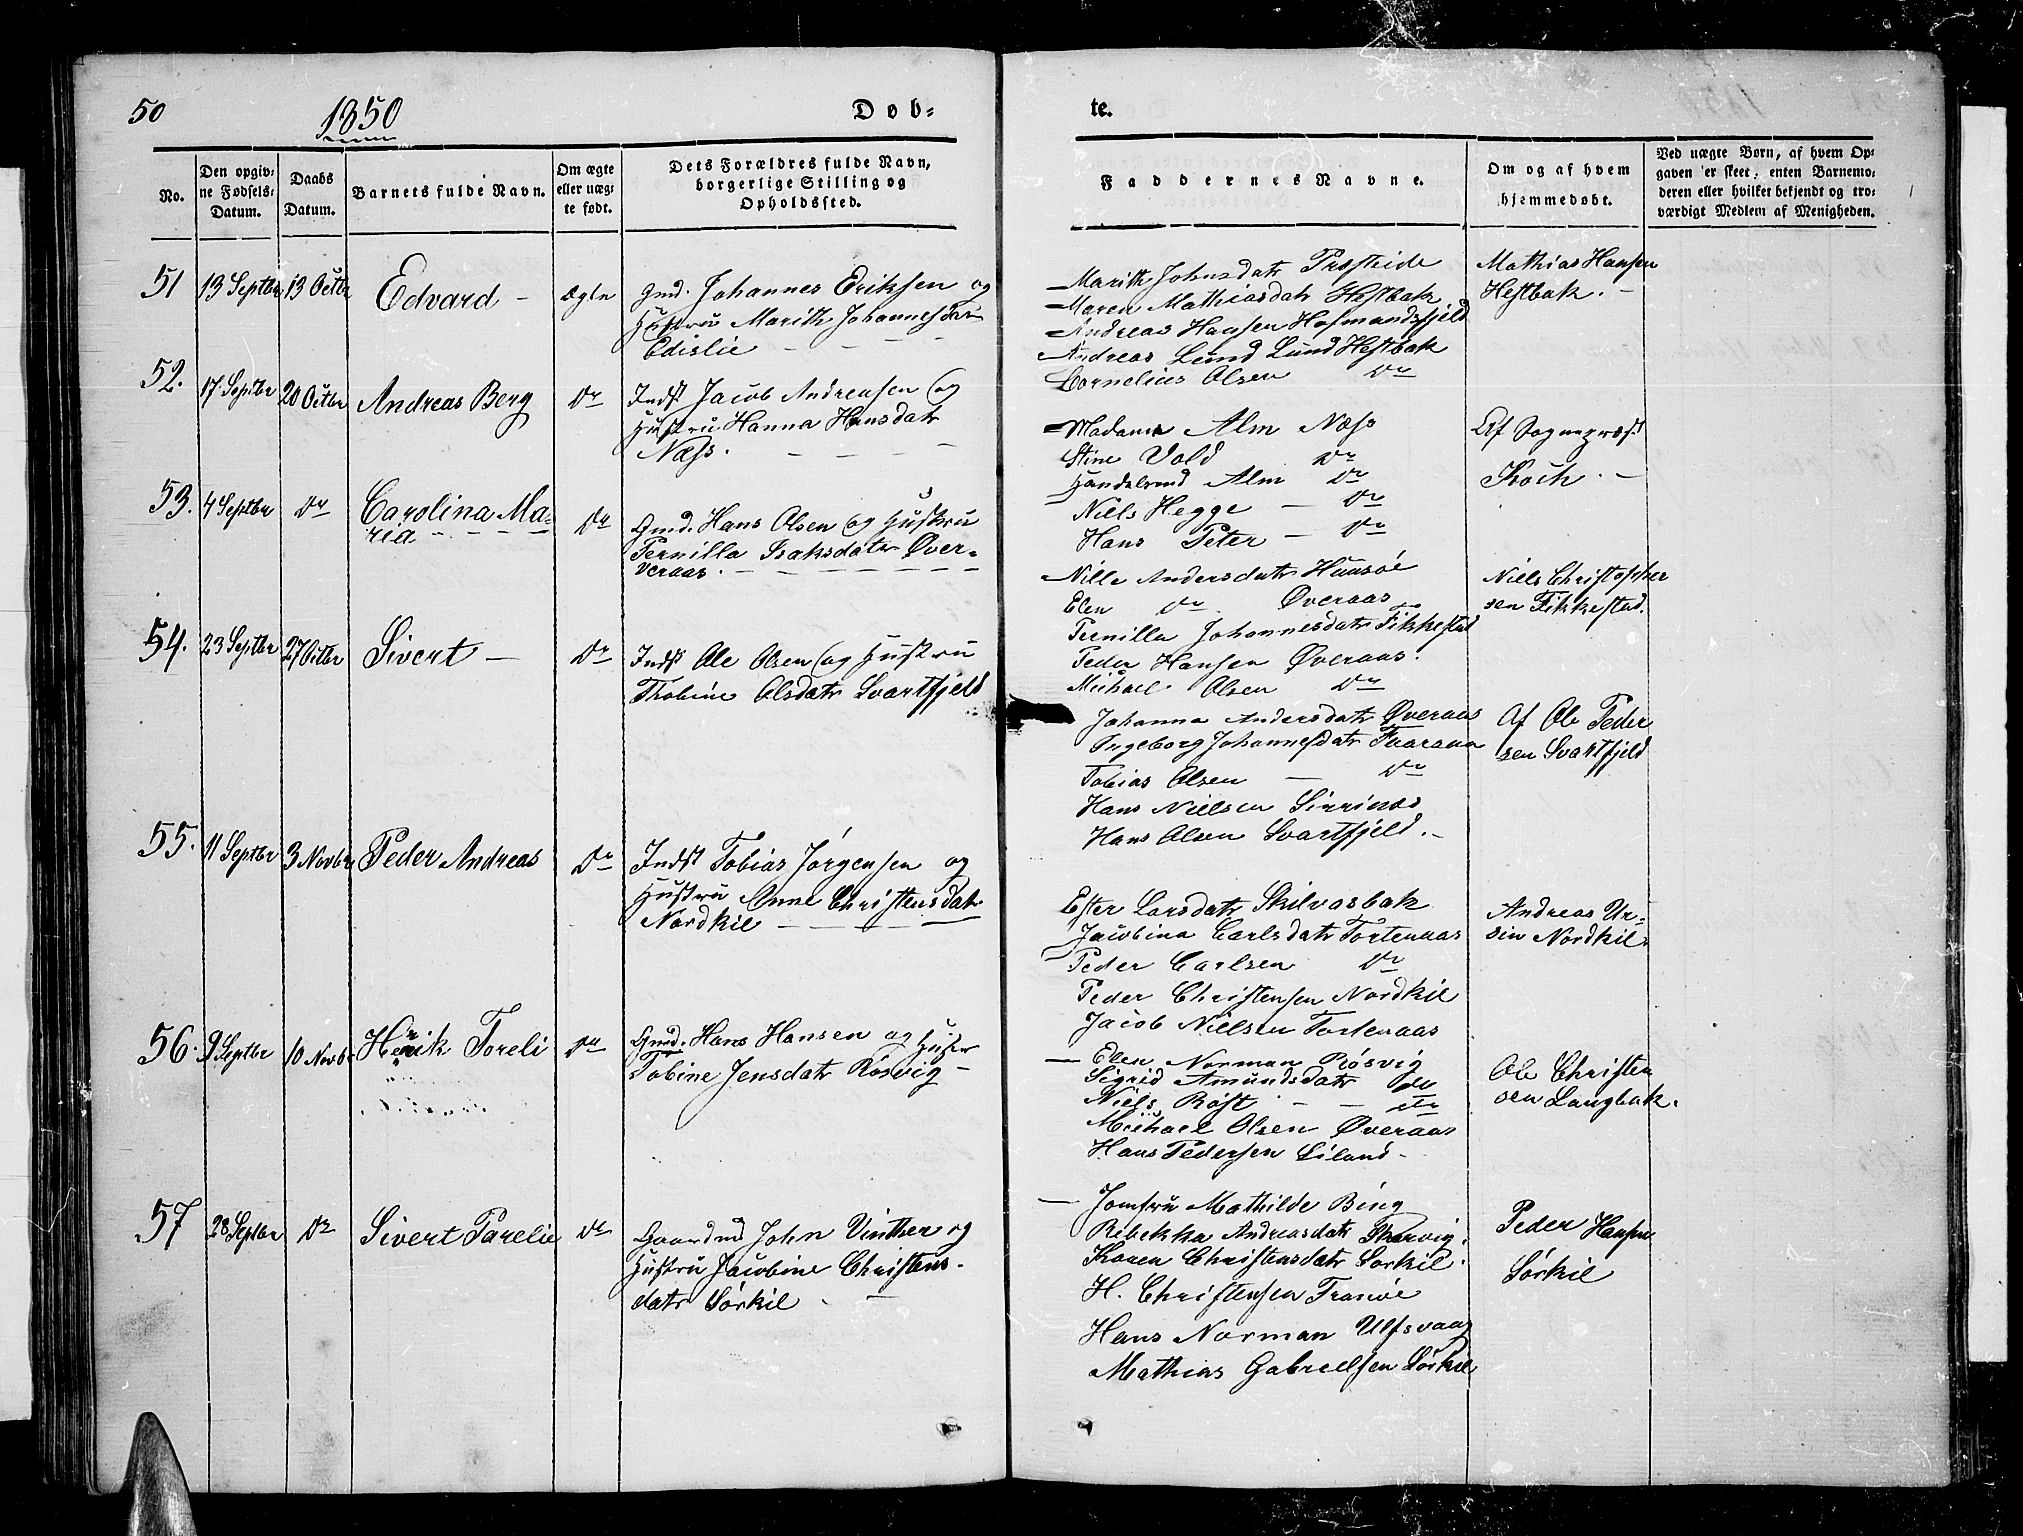 50
1850
Døb-
te.
No.
Den opgivne Fødsels-Datum.
Daabs Datum.
Barnets fulde Navn.
Om ægte eller uægte født.
Dets Forældres fulde Navn, borgerlige Stilling og Opholdssted.
Faddernes Navne.
Om og af hvem hjemmedøbt.
Ved uægte Børn, af hvem Opgaven er skeet; enten Barnemoderen eller hvilket bekjendt og troværdigt Medlem af Menigheden.
51
13 Septbr
13 Octbr
Edvard –
ægte
Gmd. Johannes Eriksen og
Hustru Marith Johannesdatr
Edislie
Marith Johnsdatr
Maren Mathiasdatr Hestbak
Andreas Hansen Hofmandsfjeld
Andreas Lund Lund Hestbak
Cornelius Olsen Do
Mathias Hansen
Hestbak. –
52.
17 Septbr
20 Octbr
Andreas Berg
Do
Indst Jacob Andreasen og
Hustru Hanna Hansdatr
Næss.
Madame Alm Næss
Stine Vold Do
Handelsmd Alm Do
Niels Hegge – Do
Hans Peter – Do
Af Sognepræst
Koch. –
53.
4 Septbr
Do
Carolina Ma-
ria
Do
Gmd. Hans Olsen og Hustru
Pernilla Isaksdatr Øver-
veraas.
Nille Andersdatr
Elen Do Øveraas
Pernilla Johannesdatr Fikkestad
Peder Hansen Øveraas.
Michael Olsen Do
Niels Christopher
sen Fikkestad.
54.
23 Septbr
27 Octbr
Sivert –
Do
Indst Ole Olsen og Hustru
Thobine Olsdatr Svartfjeld
Johanna Andersdatr Øveraas
Ingeborg Johannesdatr
Tobias Olsen – Do
Hans Nielsen
Hans Olsen Svartfjeld. –
Af Ole Peder
sen Svartfjeld
55.
11 Septbr
3 Novbr
Peder Andreas
Do
Indst Tobias Jørgensen og
Hustru Anne Christensdatr
Nordkil
Ester Larsdatr Skilvasbak
Jacobina Carlsdatr Tortenaas
Peder Carlsen Do
Peder Christensen Nordkil
Jacob Nielsen Tortenaas
Andreas Ur-
sin Nordkil.
56.
9 Septbr
10 Novbr
Henrik Toreli
Do
Gmd. Hans Hansen og Hustru
Tobine Jensdatr Røsvig –
Elen Norman Røsvig
Sigrid Amundsdatr Do
Niels Røst – – Do
Michael Olsen Øveraas
Hans Pedersen Liland –
Ole Christen
sen Langbak.
57
28 Septbr
Do
Sivert Parelie
Do
Gaardmd John Vinther og
Hustru Jacobine Christens-
datr Sørkil
Jomfru Mathilde Bing
Rebekka Andreasdatr
Karen Christensdatr Sørkil.
H. Christensen Tranøe
Hans Norman Ulfsvaag
Mathias Gabrielsen Sørkil
Peder Hansen
Sørkil